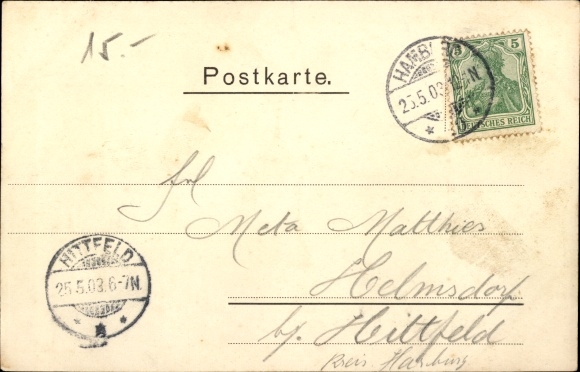 15.-
Postkarte.
HAMBURG
25.5.03.
5
DEUTSCHES REICH
Frl
Meta Matthies
Helmsdorf
by. Hittfeld
Kreis Harburg
HITTFELD
25.5.03.6-7N.